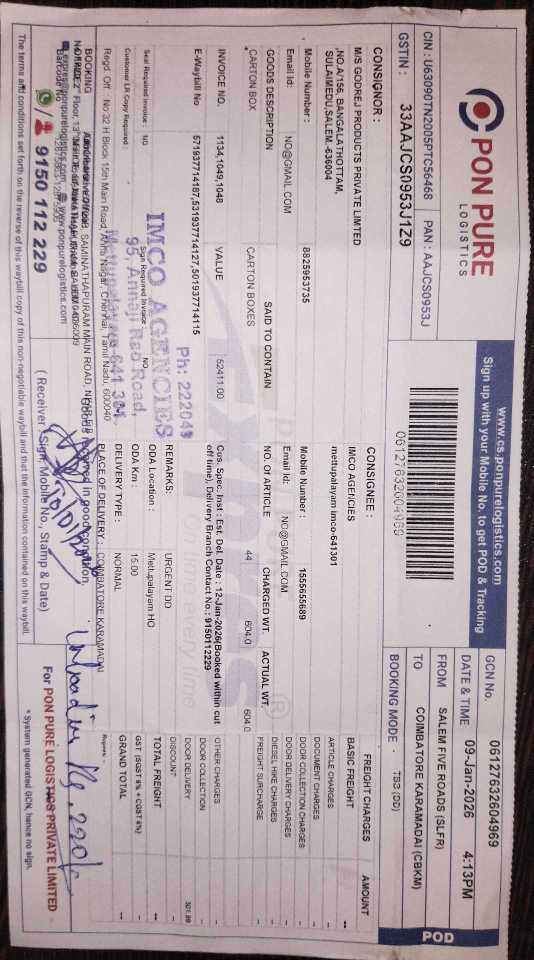 PON PURE
LOGISTICS
www.cs.ponpurelogistics.com
Sign up with your Mobile No. to get POD & Tracking
GCN No. 06127632604969
DATE & TIME 09-Jan-2026 4:13PM
CIN : U63090TN2005PTC56468 PAN : AAJCS0953J
GSTIN : 33AAJCS0953J1Z9
06127632604969
FROM SALEM FIVE ROADS (SLFR)
TO COIMBATORE KARAMADAI (CBKM)
BOOKING MODE : TBB (DD)
POD
CONSIGNOR :
M/S GODREJ PRODUCTS PRIVATE LIMITED
,NO.A/156, BANGALATHOTTAM,
SULAIMEDU,SALEM.-636004
Mobile Number : 8825953735
Email Id: NO@GMAIL.COM
CONSIGNEE :
IMCO AGENCIES
mettupalayam imco-641301
Mobile Number : 1555655689
Email Id: NO@GMAIL.COM
GOODS DESCRIPTION SAID TO CONTAIN NO. OF ARTICLE CHARGED WT. ACTUAL WT.
CARTON BOX CARTON BOXES 44 604.0 604.0
INVOICE NO. 1134,1049,1048 VALUE 52411.00
E-Waybill No 571937714187,531937714127,501937714115
Cus. Spec. Inst : Est. Del. Date : 12-Jan-2026(Booked within cut
off time), Delivery Branch Contact No.: 9150112229
Seal Required Invoice NO
Sign Required Invoice NO
Customer LR Copy Required :
REMARKS: URGENT DD
ODA Location : Mettupalayam HO
ODA Km : 15.00
DELIVERY TYPE : NORMAL
PLACE OF DELIVERY : COIMBATORE KARAMADAI
FREIGHT CHARGES AMOUNT
BASIC FREIGHT --
ARTICLE CHARGES --
DOCUMENT CHARGES --
DOOR COLLECTION CHARGES --
DOOR DELIVERY CHARGES --
DIESEL HIKE CHARGES --
FREIGHT SURCHARGE --
OTHER CHARGES --
DOOR COLLECTION --
DOOR DELIVERY
DISCOUNT --
TOTAL FREIGHT --
GST (SGST 6% + CGST 6%) --
GRAND TOTAL --
Rupees:
Ph: 222049
IMCO AGENCIES
95, Annaji Rao Road,
Mettupalayam-641 304
Regd. Off : No 32 H Block 15th Main Road, Anna Nagar, Chennai, Tamil Nadu, 600040
BOOKING
SAMINATHAPURAM MAIN ROAD
www.ponpurelogistics.com
9150 112 229
Goods received in good condition
( Receiver Sign, Mobile No., Stamp & Date)
For PON PURE LOGISTICS PRIVATE LIMITED
* System generated GCN, hence no sign.
The terms and conditions set forth on the reverse of this waybill copy of this non-negotiable waybill and that the information contained on this waybill.